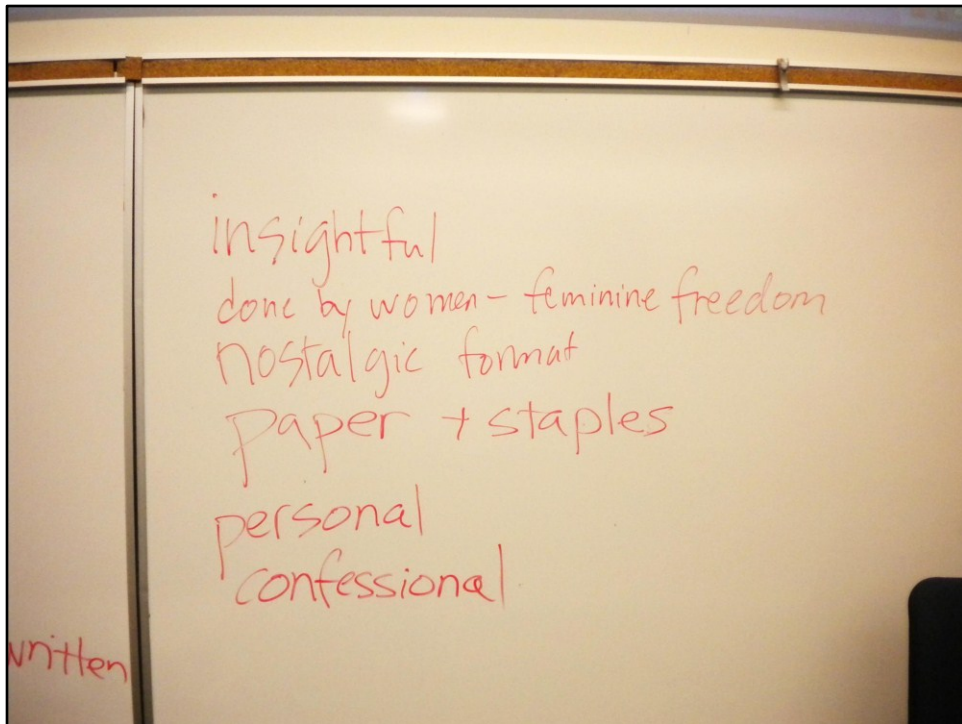 insightful
done by women - feminine freedom
nostalgic format
paper + staples
personal
confessional
written